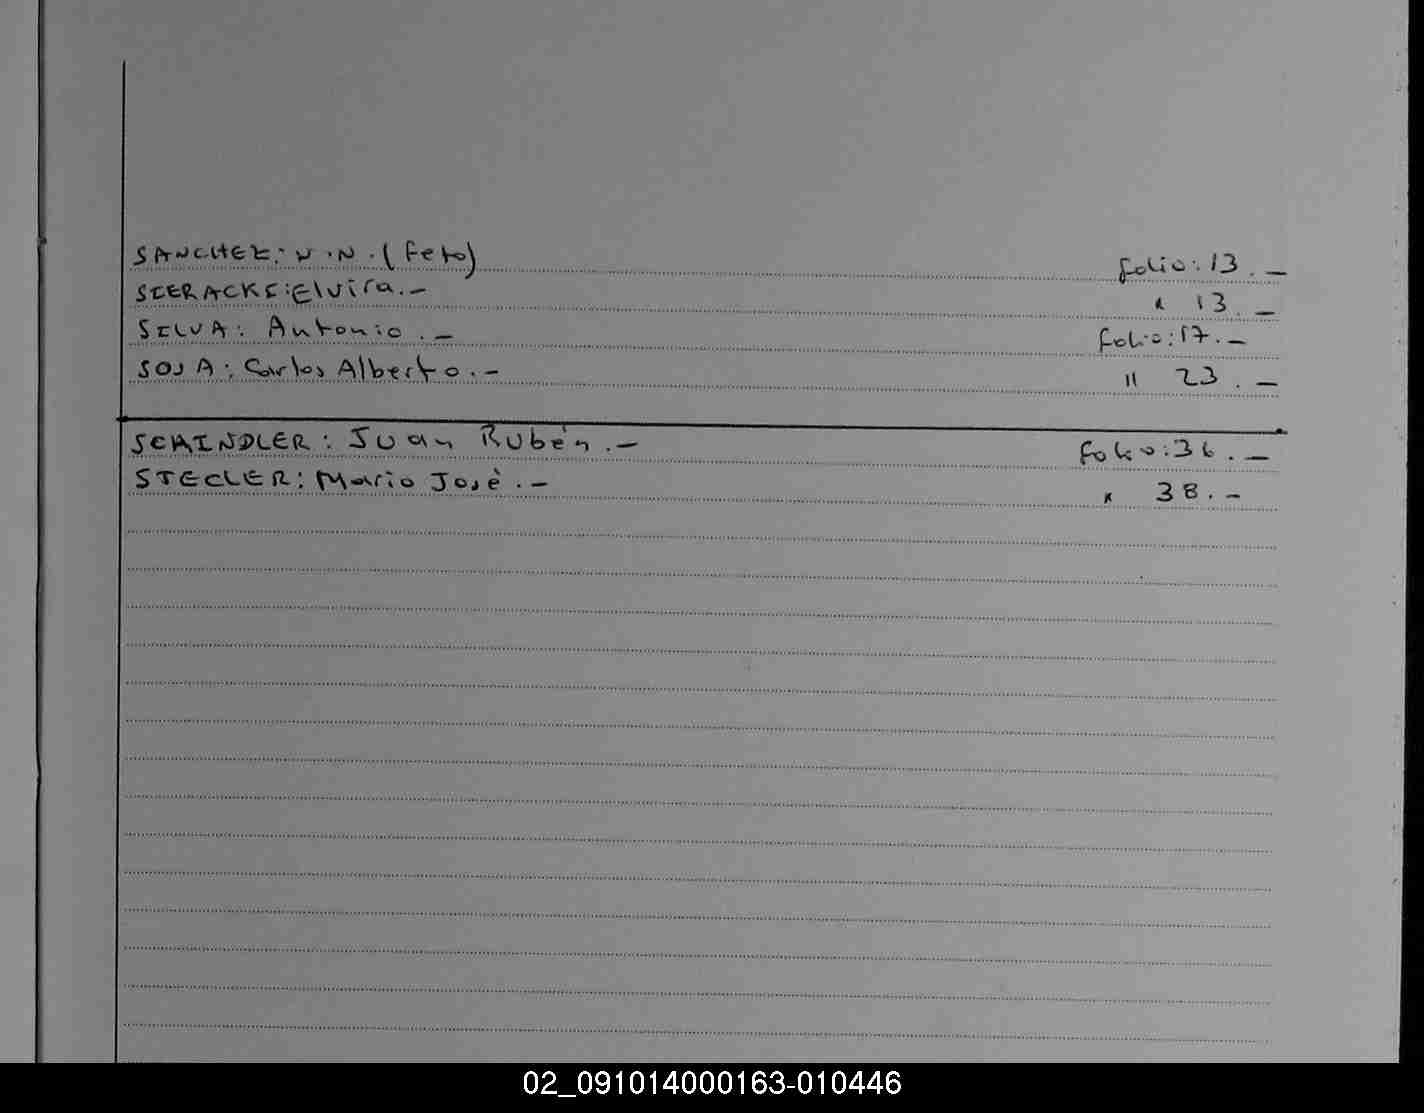 SANCHEZ: N.N. (Feto) folio: 13. -
SIERACKI: Elvira. - " 13. -
SILVA: Antonio. - folio: 17. -
SOSA: Carlos Alberto. - " 23. -
SCHINDLER: Juan Rubén. - folio: 36. -
STECLER: Mario Josè. - " 38. -
02_091014000163-010446